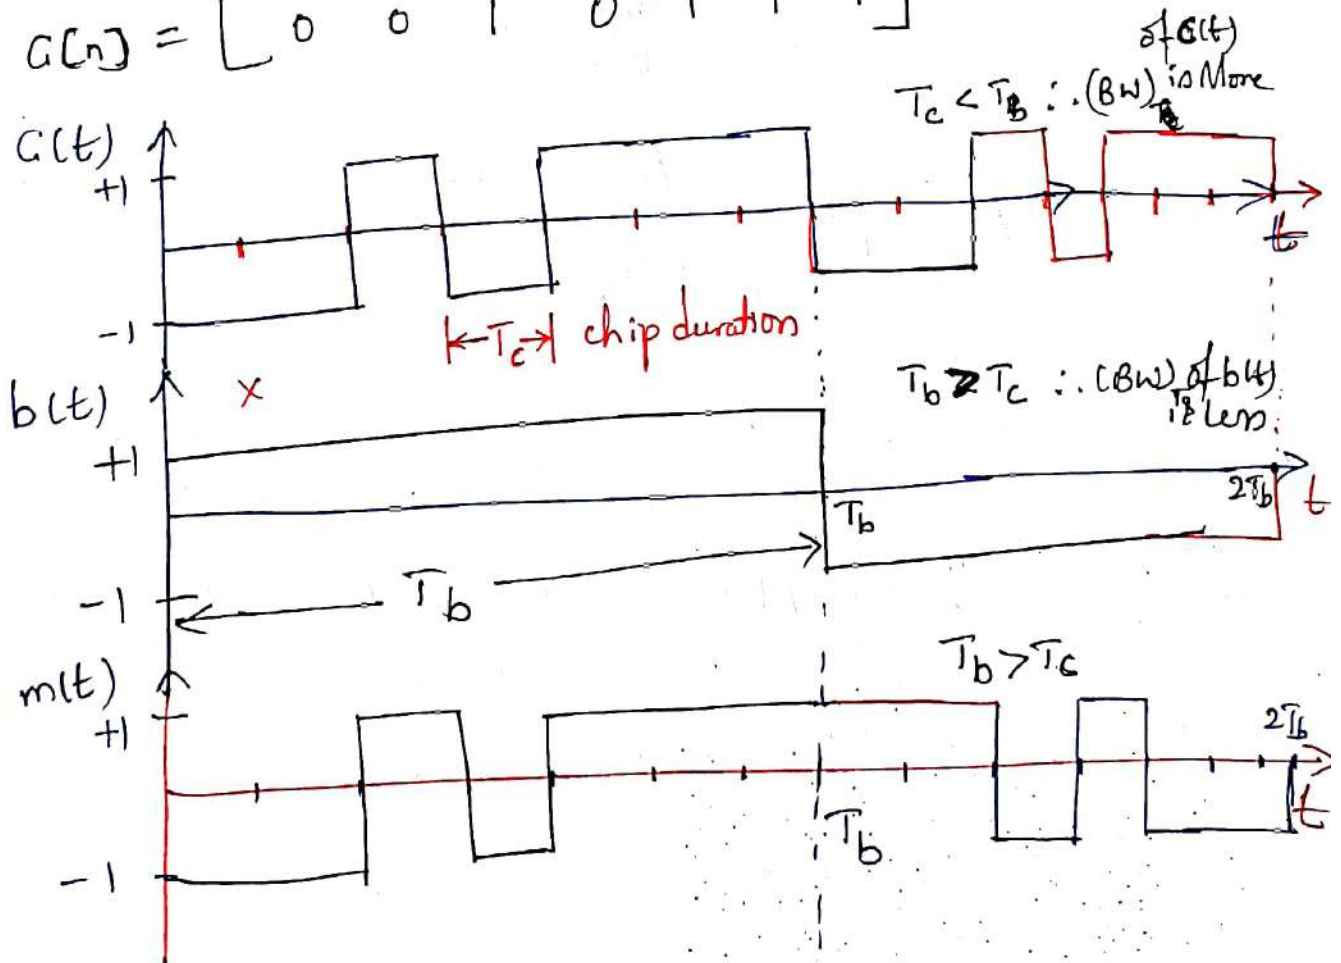 G[n] = [ 0 0 1 0 1 1 1 ]
of G(t)
Tc < TB ∴ (BW) is More
G(t)
+1
t
-1
←Tc→ chip duration
x
b(t)
Tb > Tc ∴ (BW) of b(t)
is Less
+1
Tb
2Tb
t
Tb
-1
m(t)
Tb > Tc
+1
2Tb
t
Tb
-1